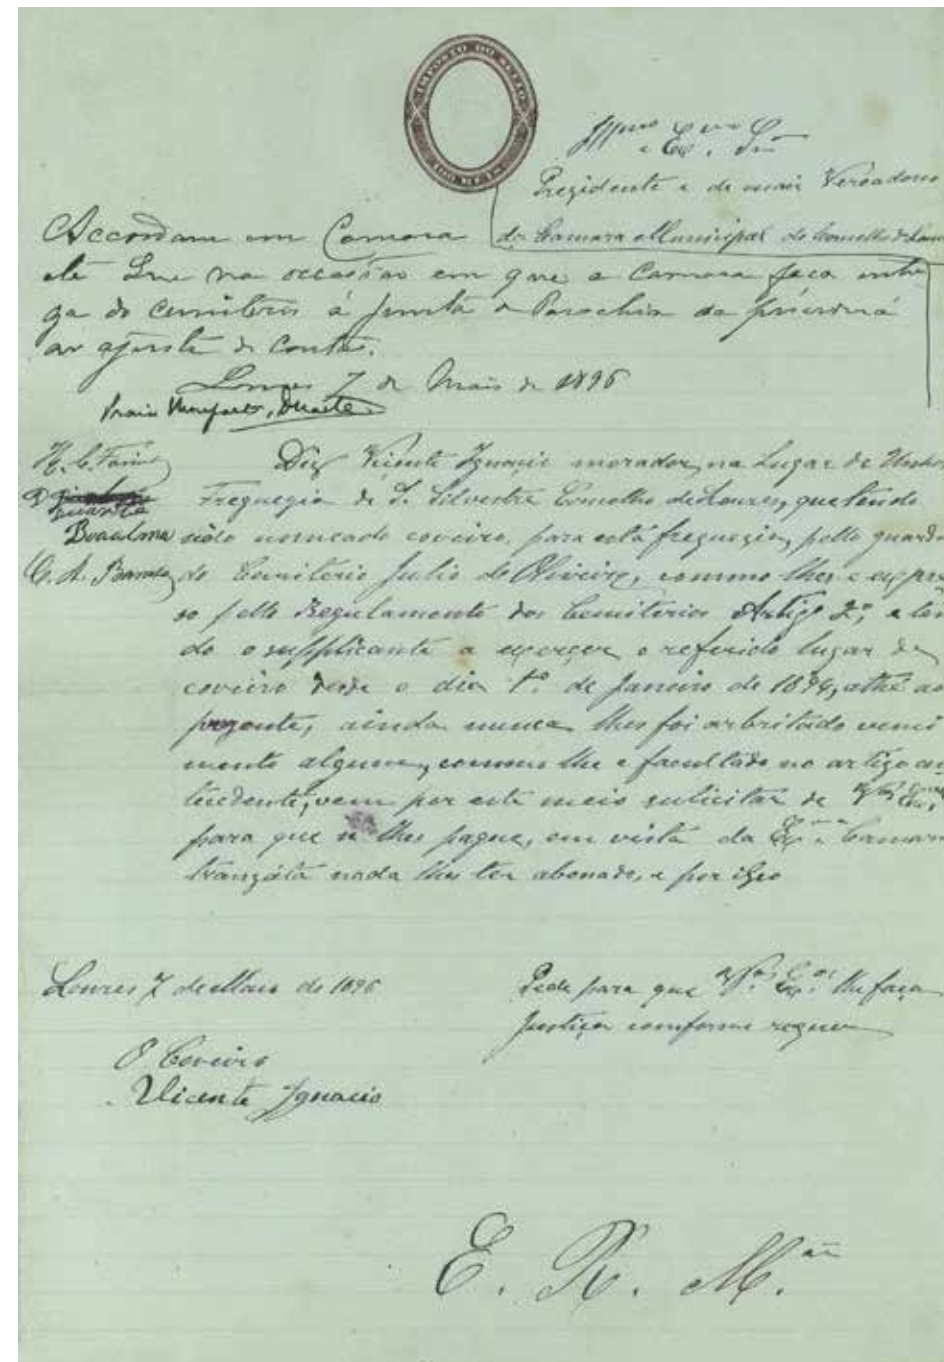 IMPOSTO DO SELLO
Ill.mo e Ex.mo Snr.
Prezidente e de mais Vereadores
da Camara Municipal do Concelho de Loures
Accordam em Camara
de Loures na occasião em que a Camara faça entre
ga do cemiterio á Junta de Parochia se procederá
ao ajuste de contas.
Loures 7 de Maio de 1896
Duarte
Diz Vicente Ignacio morador, na Lugar de Unhos
Freguezia de S. Silvestre Concelho de Loures, que tendo
sido nomeado coveiro, para esta freguezia, pello guarda
do Cemiterio Julio de Oliveira, commo lhes e expre
so pello Regulamento dos Cemiterios Artigo 2º, e ten
do o suppplicante a exerçer o referido lugar de
coveiro desde o dia 1º de Janeiro de 1894, athé ao
prezente, ainda nunca lhes foi arbritado venci
mento algum, commo lhe e facultado no artigo an
tecedente, vem por este meio sulicitar de
para que se lhes pague, em vista da Ex.ma Camara
tranzáta nada lhes ter abonado, e por isso
Loures 7 de Maio de 1896
Pede para que V.as Ex.as lhe faça
Justiça comforme requer
O Coveiro
Vicente Ignacio
E. R. M.ce